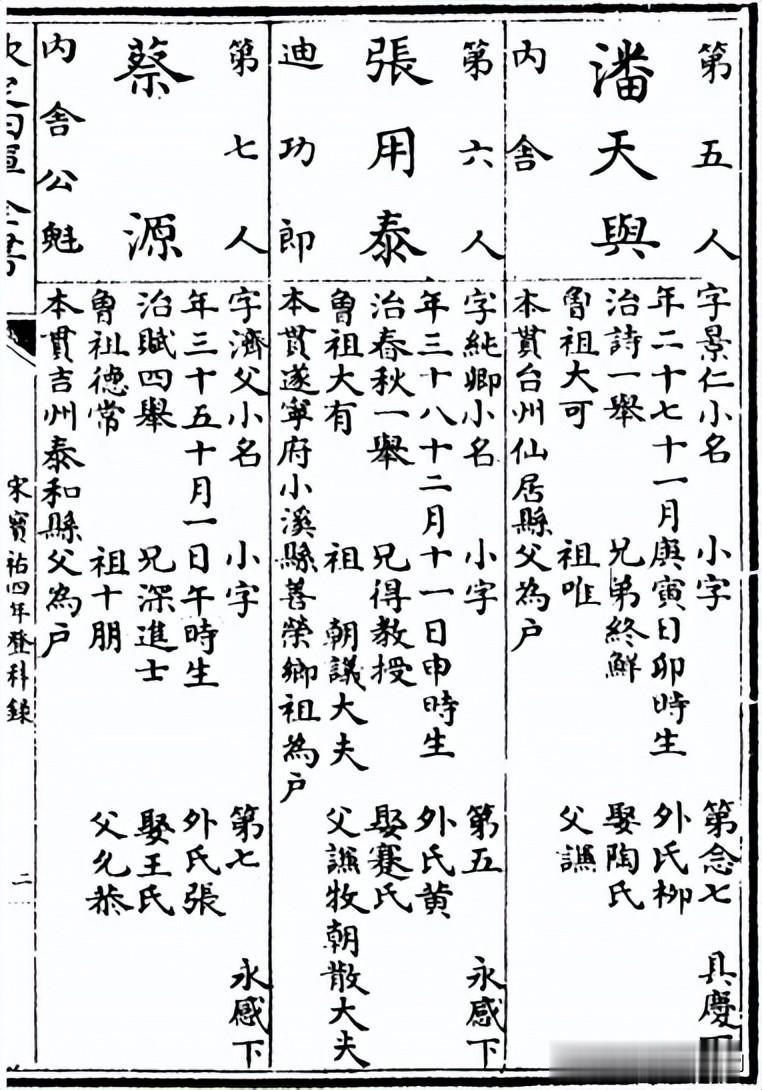 第五人
潘天與
内舍
字景仁小名 小字 第念七 具慶下
年二十七十一月庚寅日卯時生 外氏柳
治詩一舉 兄弟終鮮 娶陶氏
曾祖大可 祖唯 父讌
本貫台州仙居縣父為户
第六人
張用泰
迪功郎
字純卿小名 小字 第五 永感下
年三十八十二月十一日申時生 外氏黄
治春秋一舉 兄得教授 娶蹇氏
曾祖大有 祖 朝議大夫 父讌牧朝散大夫
本貫遂寧府小溪縣善榮鄉祖為户
第七人
蔡源
内舍公魁
字濟父小名 小字 第七 永感下
年三十五十月一日午時生 外氏張
治賦四舉 兄深進士 娶王氏
曾祖德常 祖十朋 父允恭
本貫吉州泰和縣父為户
宋寶祐四年登科錄
二